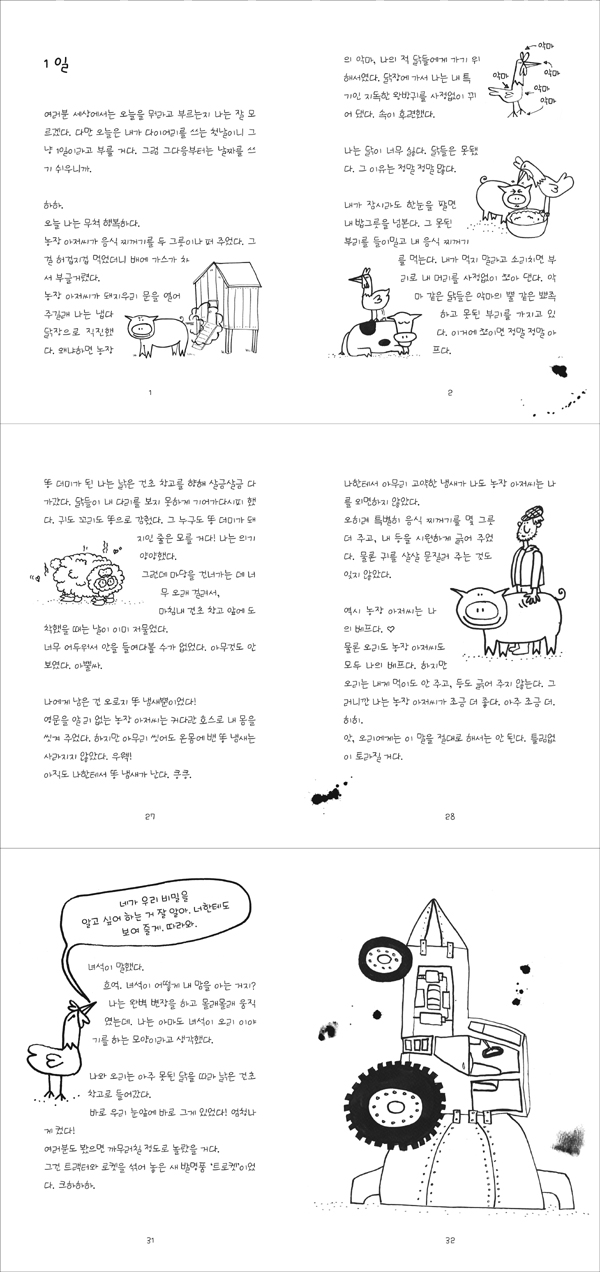 1 일
여러분 세상에서는 오늘을 뭐라고 부르는지 나는 잘 모
르겠다. 다만 오늘은 내가 다이어리를 쓰는 첫날이니 그
냥 1일이라고 부를 거다. 그럼 그다음부터는 날짜를 쓰
기 쉬우니까.
하하.
오늘 나는 무척 행복하다.
농장 아저씨가 음식 찌꺼기를 두 그릇이나 퍼 주었다. 그
걸 허겁지겁 먹었더니 배에 가스가 차
서 부글거렸다.
농장 아저씨가 돼지우리 문을 열어
주길래 나는 냅다
닭장으로 직진했
다. 왜냐하면 농장
1
의 악마, 나의 적 닭들에게 가기 위
해서였다. 닭장에 가서 나는 내 특
기인 지독한 왕방귀를 사정없이 뀌
어 댔다. 속이 후련했다.
악마
악마
악마
악마
나는 닭이 너무 싫다. 닭들은 못됐
다. 그 이유는 정말 정말 많다.
내가 잠시라도 한눈을 팔면
내 밥그릇을 넘본다. 그 못된
부리를 들이밀고 내 음식 찌꺼기
를 먹는다. 내가 먹지 말라고 소리치면 부
리로 내 머리를 사정없이 쪼아 댄다. 악
마 같은 닭들은 악마의 뿔 같은 뾰족
하고 못된 부리를 가지고 있
다. 이거에 쪼이면 정말 정말 아
프다.
2
똥 더미가 된 나는 낡은 건초 창고를 향해 살금살금 다
가갔다. 닭들이 내 다리를 보지 못하게 기어가다시피 했
다. 귀도 꼬리도 똥으로 감췄다. 그 누구도 똥 더미가 돼
지인 줄은 모를 거다! 나는 의기
양양했다.
그런데 마당을 건너가는 데 너
무 오래 걸려서,
마침내 건초 창고 앞에 도
착했을 때는 날이 이미 저물었다.
너무 어두워서 안을 들여다볼 수가 없었다. 아무것도 안
보였다. 아뿔싸.
나에게 남은 건 오로지 똥 냄새뿐이었다!
영문을 알 리 없는 농장 아저씨는 커다란 호스로 내 몸을
씻겨 주었다. 하지만 아무리 씻어도 온몸에 밴 똥 냄새는
사라지지 않았다. 우웩!
아직도 나한테서 똥 냄새가 난다. 킁킁.
27
나한테서 아무리 고약한 냄새가 나도 농장 아저씨는 나
를 외면하지 않았다.
오히려 특별히 음식 찌꺼기를 몇 그릇
더 주고, 내 등을 시원하게 긁어 주었
다. 물론 귀를 살살 문질러 주는 것도
잊지 않았다.
역시 농장 아저씨는 나
의 베프다. ♡
물론 오리도 농장 아저씨도
모두 나의 베프다. 하지만
오리는 내게 먹이도 안 주고, 등도 긁어 주지 않는다. 그
러니깐 나는 농장 아저씨가 조금 더 좋다. 아주 조금 더.
히히.
앗, 오리에게는 이 말을 절대로 해서는 안 된다. 틀림없
이 토라질 거다.
28
네가 우리 비밀을
알고 싶어 하는 거 잘 알아. 너한테도
보여 줄게. 따라와.
녀석이 말했다.
흐여. 녀석이 어떻게 내 맘을 아는 거지?
나는 완벽 변장을 하고 몰래몰래 움직
였는데. 나는 아마도 녀석이 오리 이야
기를 하는 모양이라고 생각했다.
나와 오리는 아주 못된 닭을 따라 낡은 건초
창고로 들어갔다.
바로 우리 눈앞에 바로 그게 있었다! 엄청나
게 컸다!
여러분도 봤으면 까무러칠 정도로 놀랐을 거다.
그건 트랙터와 로켓을 섞어 놓은 새 발명품 '트로켓'이었
다. 크하하하.
31
32